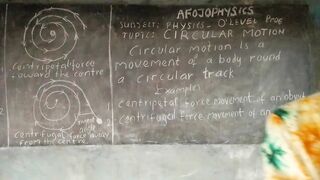 AFOJOPHYSICS
SUBJECT: PHYSICS - O'LEVEL
TOPIC: CIRCULAR MOTION
Circular motion is a
movement of a body round
a circular track
Examples
1 centripetal force movement of an
2 centrifugal force movement of an
centripetal force
toward the centre
centrifugal force away
from the centre